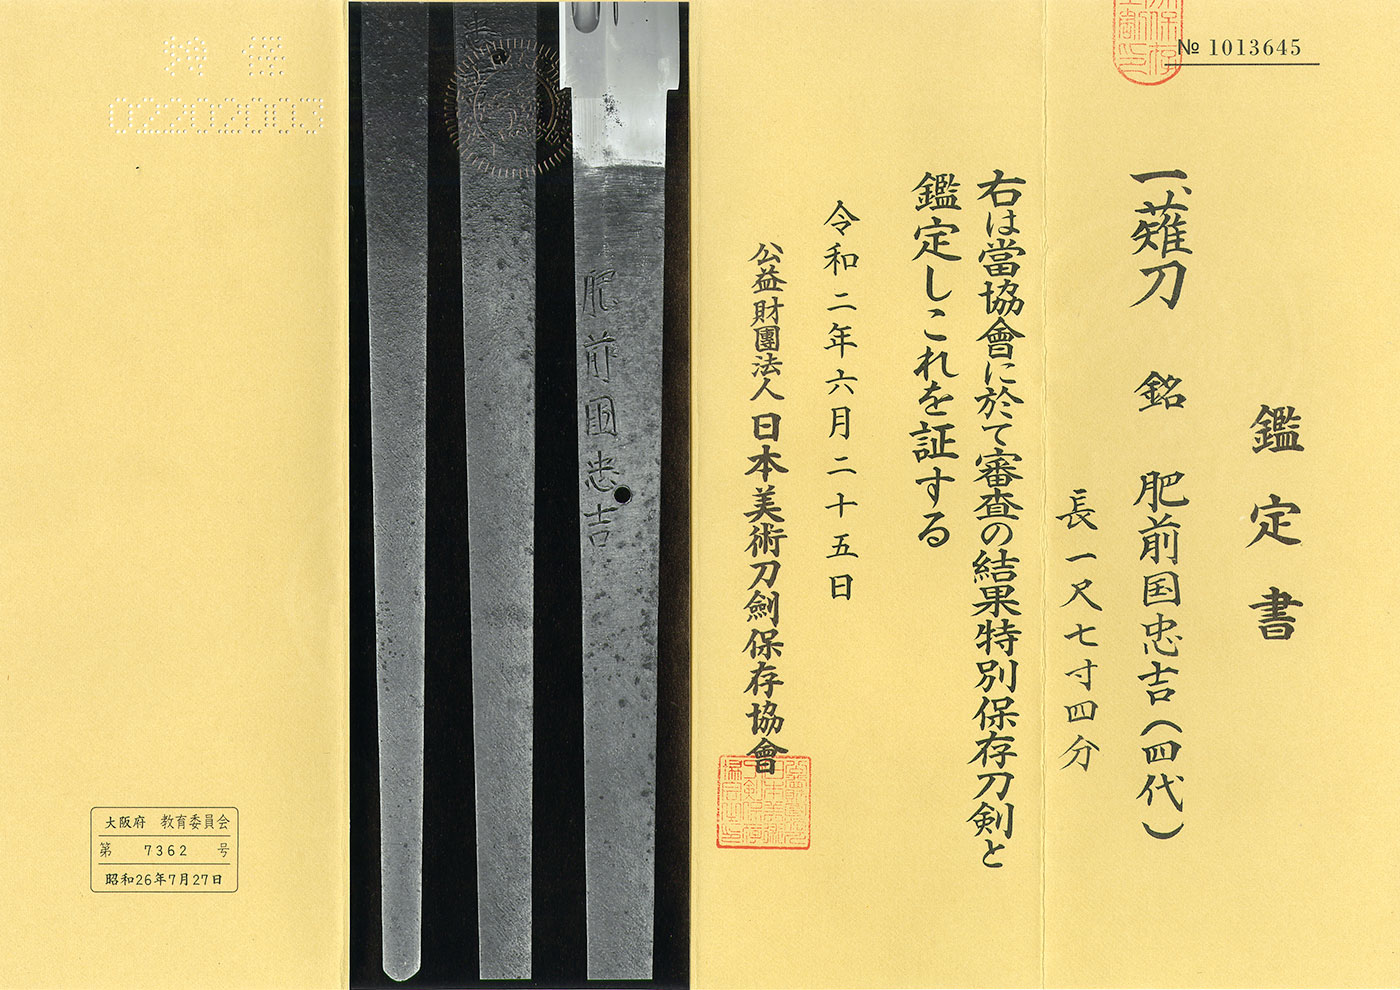 № 1013645
鑑定書
一、薙刀 銘 肥前国忠吉(四代)
長一尺七寸四分
右は當協會に於て審査の結果特別保存刀剣と
鑑定しこれを証する
令和二年六月二十五日
公益財團法人日本美術刀劍保存協會
肥前国忠吉
特保
02202003
大阪府 教育委員会
第 7362 号
昭和26年7月27日